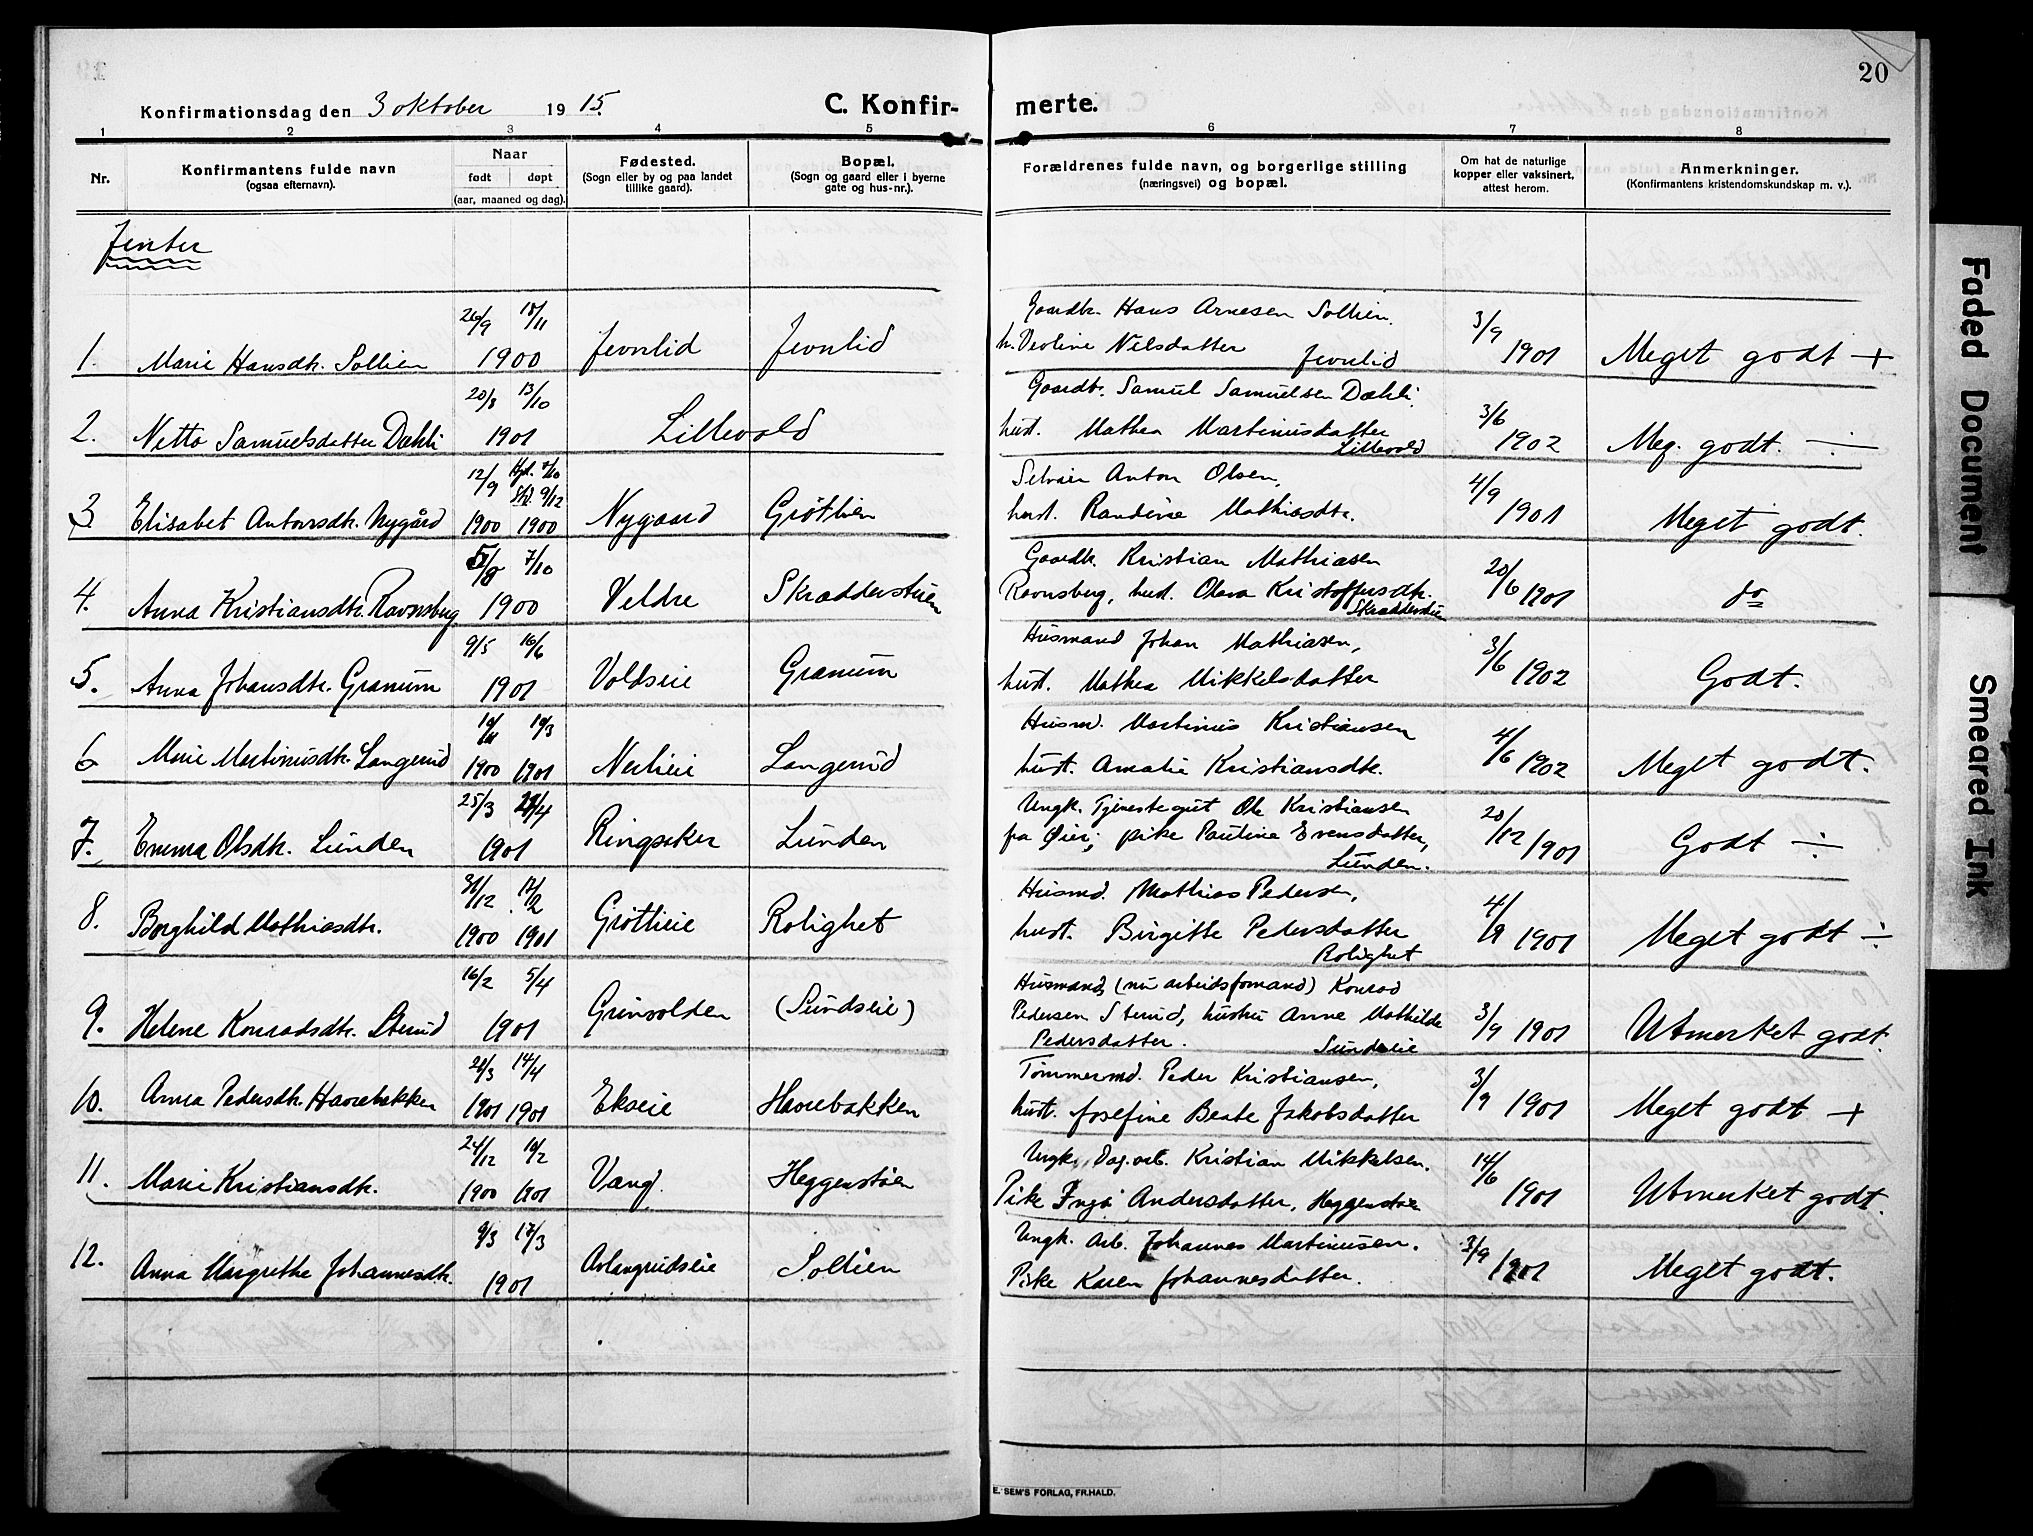 20
Konfirmationsdag den 3 oktober 1915.
C. Konfirmerte.
1 2 3 4 5 6 7 8
Nr.
Konfirmantens fulde navn
(ogsaa efternavn).
Naar
født døpt
(aar, maaned og dag).
Fødested.
(Sogn eller by og paa landet
tillike gaard).
Bopæl.
(Sogn og gaard eller i byerne
gate og hus-nr.).
Forældrenes fulde navn, og borgerlige stilling
(næringsvei) og bopæl.
Om hat de naturlige
kopper eller vaksinert,
attest herom.
Anmerkninger.
(Konfirmantens kristendomskundskap m. v.).
Jenter
26/9 18/11
1. Marie Hansdtr. Sollien 1900 Jevnlid Jevnlid
Gaardbr. Hans Arnesen Sollien.
h. Verline Nilsdatter Jevnlid
3/9 1901 Meget godt +
20/8 13/10
2. Netta Samuelsdatter Dæhli 1901 Lillevold
Gaardbr. Samuel Samuelsen Dæhli,
hust. Mathea Martinusdatter
Lillevold
3/6 1902 Meg. godt. ÷
12/9 Hjd. 7/10
Std. 9/12
3. Elisabet Antonsdtr. Nygård 1900 1900 Nygaard Grötlien
Selveier Anton Olsen,
hust. Randine Mathiasdtr.
4/9 1901 Meget godt.
5/8 7/10
4. Anna Kristiansdtr. Ravnsberg 1900 Veldre Skrædderstuen
Gaardbr. Kristian Mathiasen
Ravnsberg, hust. Olava Kristoffersdtr.
Skrædderstuen
20/6 1901 do
9/5 16/6
5. Anna Johansdtr. Granum 1901 Voldseie Granum
Husmand Johan Mathiasen,
hust. Mathea Mikkelsdatter
3/6 1902 Godt.
10/3
6 Marie Martinusdtr. Langerud 1900 1901 Nerlieie Langerud
Husmd. Martinus Kristiansen
hust. Amalie Kristiansdtr.
4/6 1902 Meget godt.
25/3 28/4
7. Emma Olsdtr. Lunden 1901 Ringsaker Lunden
Ungk. Tjenestegut Ole Kristiansen
fra Øier; pike Pauline Evensdatter,
Lunden.
20/12 1901 Godt ÷
31/12 17/2
8. Borghild Mathiasdtr. 1900 1901 Grötlieie Rolighet
Husmd. Mathias Pedersen,
hust. Birgitte Pedersdatter
Rolighet
4/9 1901 Meget godt ÷
16/2 5/4
9. Helene Konradsdtr. Sterud 1901 Grinvolden (Sundseie)
Husmand, (nu arbeidsformand) Konrad
Pedersen Sterud, hustru Anne Mathilde
Pedersdatter. Sundseie
3/9 1901 Utmerket godt.
20/3 14/4
10. Anna Pedersdtr. Havrebakken 1901 1901 Ekseie Havrebakken
Tømmermd. Peder Kristiansen,
hust. Josefine Beate Jakobsdatter
3/9 1901 Meget godt +
24/12 10/2
11. Marie Kristiansdtr. 1900 1901 Vang. Heggenstøen
Ungk. Dag.arb. Kristian Mikkelsen.
Pike Inga Andersdatter, Heggenstøen
14/6 1901 Utmerket godt.
9/3 17/3
12. Anna Margrethe Johannesdtr. 1901 Avlangrudseie Sollien
Ungk. Arb. Johannes Martinusen.
Pike Karen Johannesdatter.
3/9 1901 Meget godt.
E. SEM'S FORLAG, FR.HALD.
Faded Document
Smeared Ink